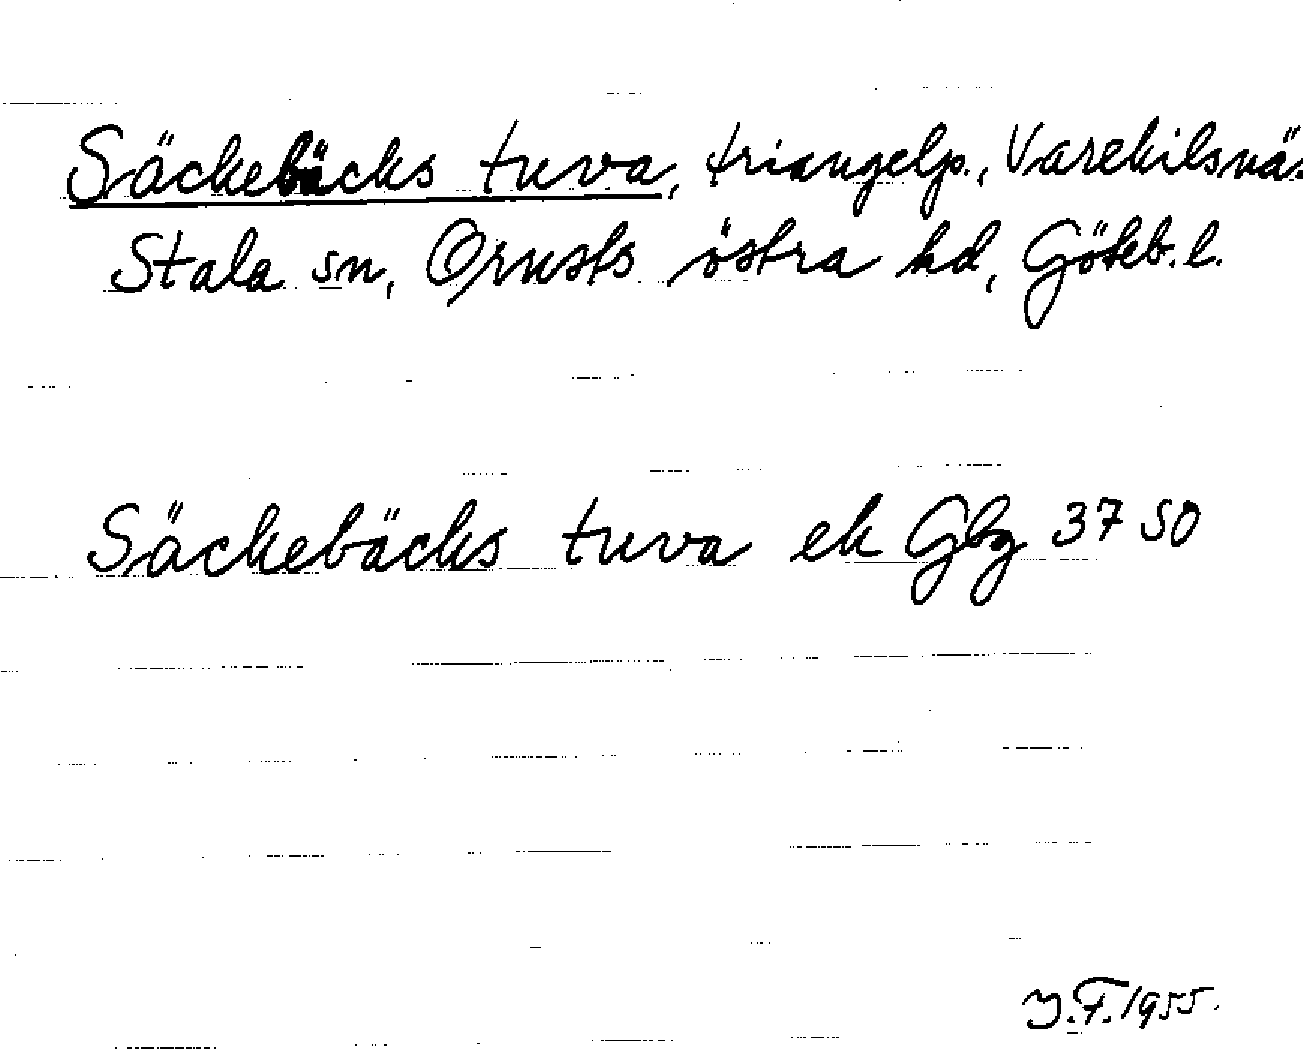 Säckebäcks tuva, triangelp., Varekilsnäs
Stala sn, Orusts östra hd, Göteb. l.
Säckebäcks tuva ek Gbg 37 SO
Y.F. 1955.